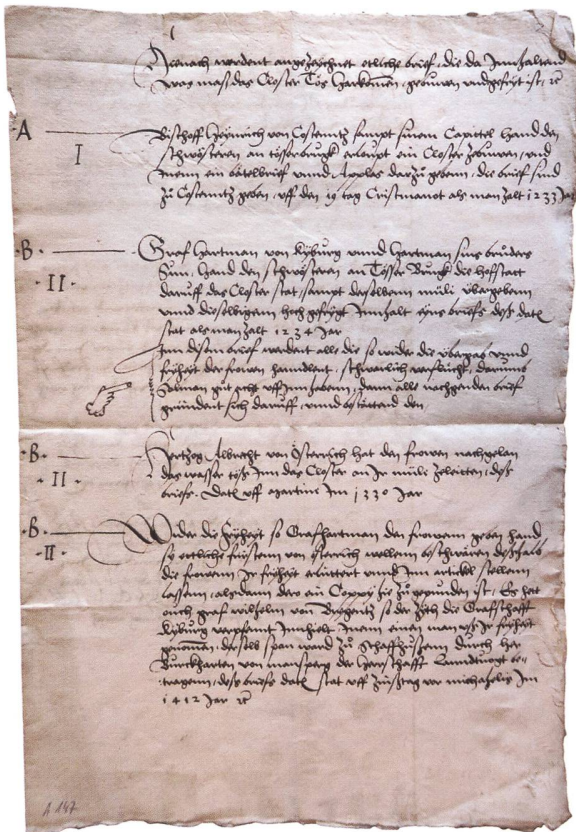 Hienach werdent angezeichnet ettliche brief, die da Innhaltend
was mass das Closter Tös harkomen, gebuwen und gefryt ist, etc
A
I
Bischoff Heinrich von Costentz sampt sinem Capittel hand den
schwösteren an tösserbrugk erloupt ein Closter zebuwen, und
Inenn ein bättelbrieff unnd Applas darzu gebenn, die brief sind
zu Costentz geben, uff den 19 tag Cristmanot als man zalt 1233 Jar
·B·
·II·
Graf Hartman von Kyburg unnd Hartman sins bruders
Sun, hand den schwösteren an Tösser Brugk die hofstatt
daruff das Closter stat, sampt derselbenn müli übergebenn
unnd dieselbigenn hoch gefrygt Innhalt eyns briefs dess datum
stat als man zalt 1234 Jar
Inn disem brief werdent alle die so wider die übergab unnd
fryheit der frowen handlent, schwarlich verflucht, darumb
selman gut acht uff Inn habenn, dann alle nachgenden brief
gründent sich daruff, unnd bestättend den
·B·
·II·
Hertzog Albrecht von Österrich hat den frowen nachgelan
das wasser töss Inn das Closter an Ir müli zeleitten, dess
briefs. Datum uff martini Im 1330 Jar
·B·
·II·
Wider die fryheyt so Graf Hartman den frowenn geben hand
sy ettliche fürstenn von österrich wellenn beschwären desshalb
die frowenn Ir fryheyt erlüttert unnd Inn artickel stellenn
lassenn, alsdann dero ein Coppy hie zu gepunden ist, Es hat
ouch graf wilhelm von Bregentz so der Zyth die Grafschafft
Kyburg verpfent Innhielt Inenn einen man uss Ir fryheit
genomen, derselb span ward zu Schaffhusenn durch her
Burckharten von mansperg der herschafft Lanndtvogt be-
tragenn, dess briefs datum stat uff Zinsstag vor michahelis Im
1412 Jar etc